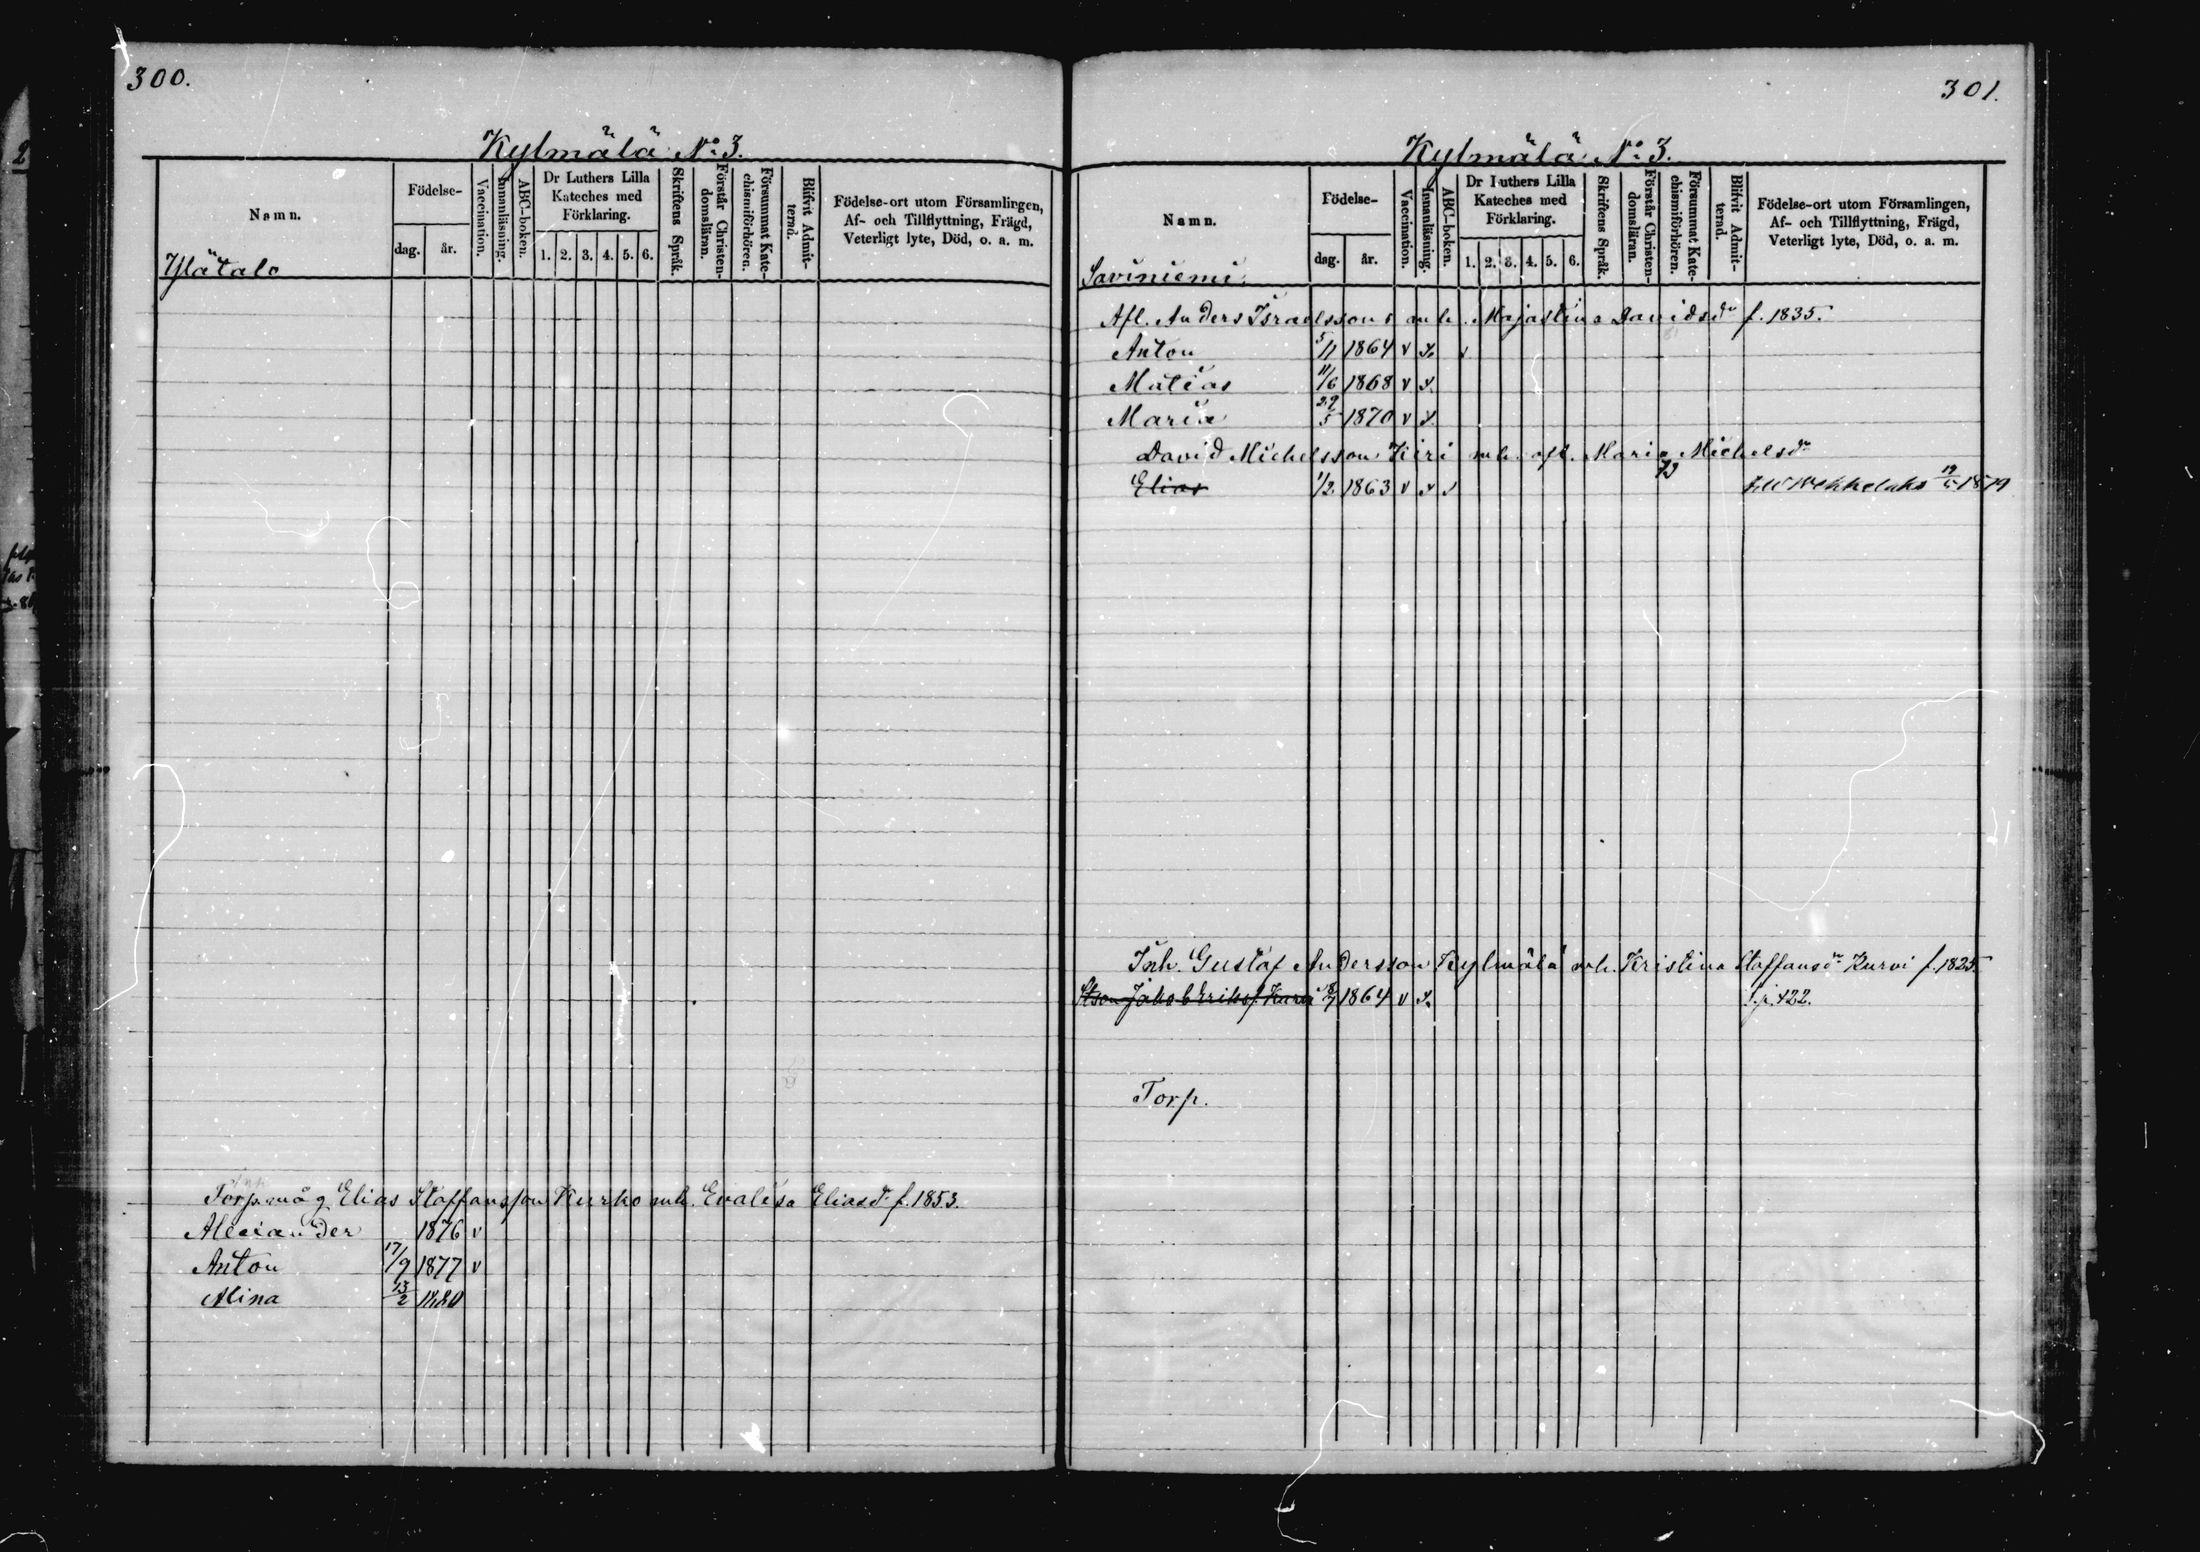 300.
Kylmälä No 3.
Namn.
Födelse-
dag.
år.
Vaccination.
Innanläsning.
ABC-boken.
Dr Luthers Lilla
Kateches med
Förklaring.
1. 2. 3. 4. 5. 6.
Skriftens Språk.
Förstår Christen-
domsläran.
Försummat Kate-
chismiförhören.
Blifvit Admit-
terad.
Födelse-ort utom Församlingen,
Af- och Tillflyttning, Frägd,
Veterligt lyte, Död, o. a. m.
Ylätalo
Torp.måg Elias Staffansson Kurko enk. Evalisa Eliasdr f. 1853.
Alexander 1876 v
Anton 17/9 1877 v
Alina 13/2 1880
301.
Kylmälä No 3.
Namn.
Födelse-
dag.
år.
Vaccination.
Innanläsning.
ABC-boken.
Dr Luthers Lilla
Kateches med
Förklaring.
1. 2. 3. 4. 5. 6.
Skriftens Språk.
Förstår Christen-
domsläran.
Försummat Kate-
chismiförhören.
Blifvit Admit-
terad.
Födelse-ort utom Församlingen,
Af- och Tillflyttning, Frägd,
Veterligt lyte, Död, o. a. m.
Saviniemi.
Afl. Anders Israelssons enk. Majastina Davidsdr f. 1835.
Anton 5/11 1864 v x v
Matias 11/6 1868 v x
Maria 29/5 1870 v x
David Michelsson Kiri enk. afl. Maria Michelsdr
Elias 1/2 1863 v x v 79 19/5 1879
Inh. Gustaf Andersson Kylmälä enk. Kristina Staffansdr Kurvi f. 1825.
Stson Jakob Erikss. 1864 v x p. 422.
Torp.